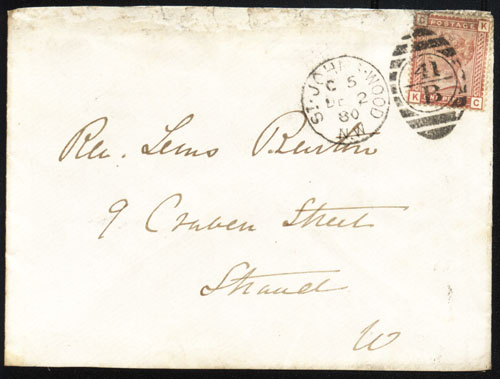 C K
POSTAGE
K C
41
B
ST. JOHN'S-WOOD
C 5
DE 2
80
N.W
Rev. Lewis Benton
9 Craven Street
Strand
W